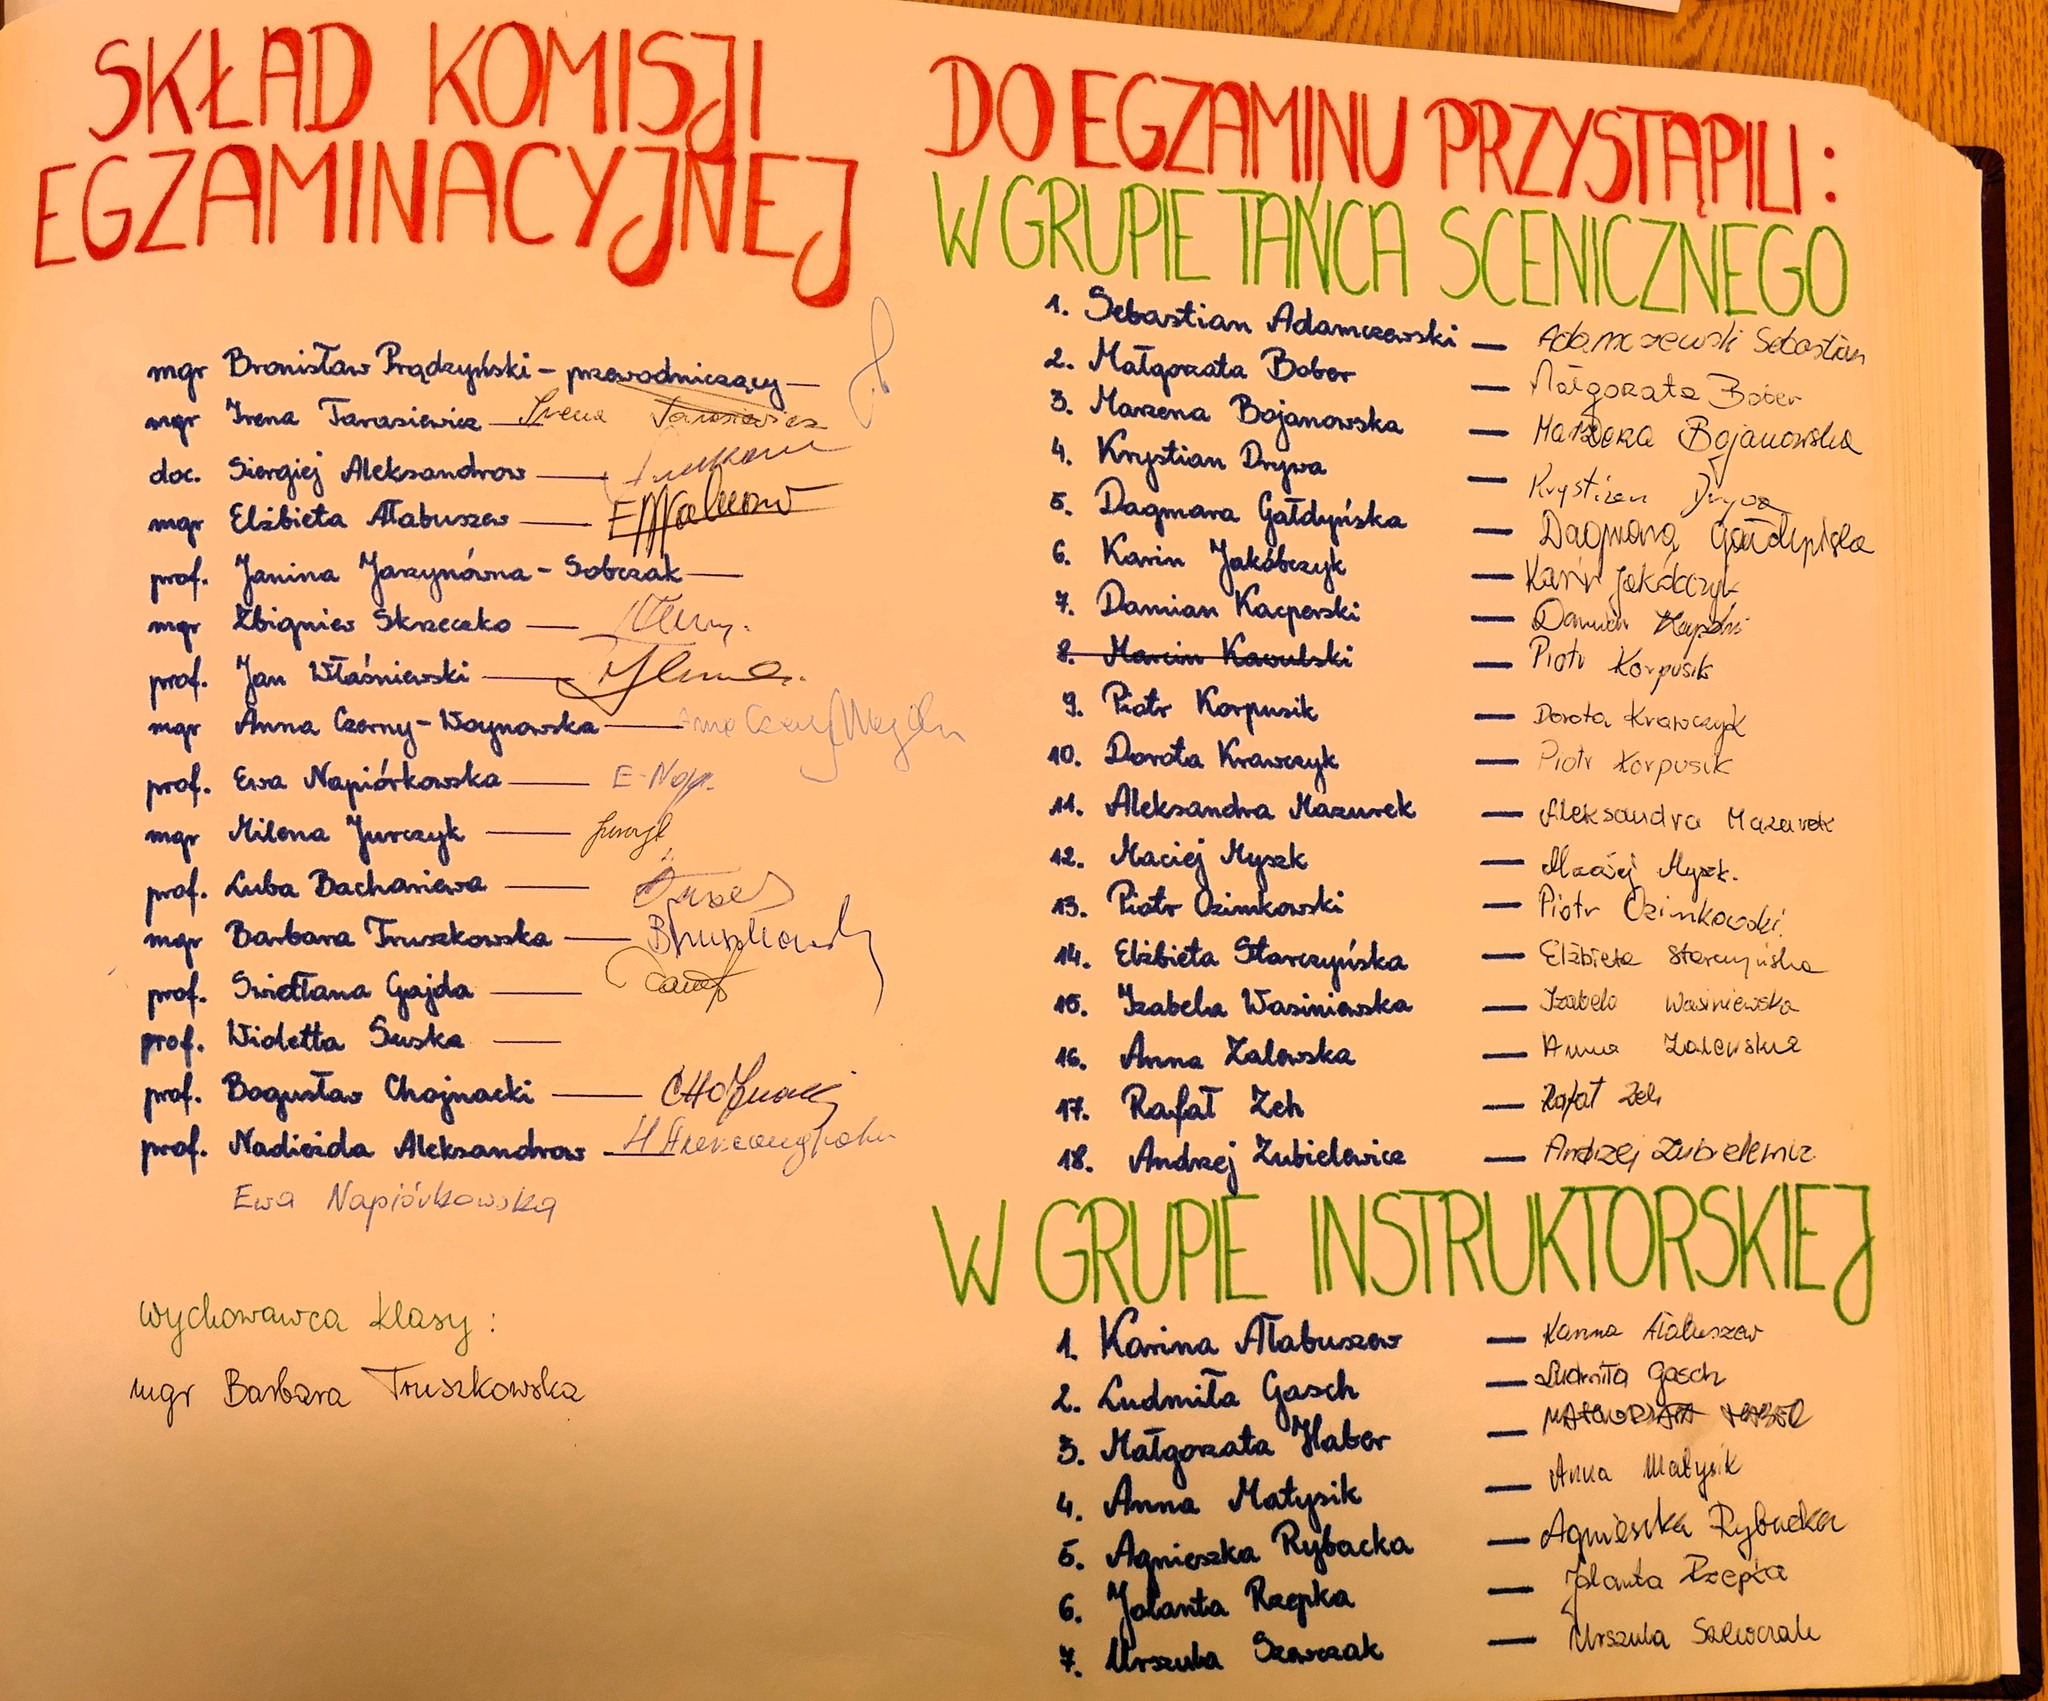 SKŁAD KOMISJI
EGZAMINACYJNEJ
mgr Bronisław Prądzyński - przewodniczący —
mgr Irena Tarasiewicz — Irena Tarasiewicz
doc. Siergiej Aleksandrow —
mgr Elżbieta Ałabuszew —
prof. Janina Jarzynówna - Sobczak —
mgr Zbigniew Skrzeczko —
prof. Jan Właśniewski —
mgr Anna Czerny - Woynowska —
prof. Ewa Napiórkowska — E-Nap.
mgr Milena Jurczyk —
prof. Luba Bachariewa —
mgr Barbara Truszkowska — BTruszkowska
prof. Swietłana Gajda —
prof. Wioletta Suska —
prof. Bogusław Chojnacki — CHOJnacki
prof. Nadieżda Aleksandrow —
Ewa Napiórkowska
wychowawca klasy :
mgr Barbara Truszkowska
DO EGZAMINU PRZYSTĄPILI :
W GRUPIE TAŃCA SCENICZNEGO
1. Sebastian Adamczewski — Adamczewski Sebastian
2. Małgorzata Bober — Małgorzata Bober
3. Marzena Bojanowska — Marzena Bojanowska
4. Krystian Drywa — Krystian Drywa
5. Dagmara Gałdyńska — Dagmara Gałdyńska
6. Karin Jakóbczyk — Karin Jakóbczyk
7. Damian Kacperski — Damian
8. Marcin Kawulski — Piotr Korpusik
9. Piotr Korpusik — Dorota Krawczyk
10. Dorota Krawczyk — Piotr Korpusik
11. Aleksandra Mazurek — Aleksandra Mazurek
12. Maciej Myszk — Maciej Myszk.
13. Piotr Ozimkowski — Piotr Ozimkowski
14. Elżbieta Starczyńska — Elżbieta Starczyńska
15. Izabela Wasiniewska — Izabela Wasiniewska
16. Anna Zalewska — Anna Zalewska
17. Rafał Zeh — Rafał Zeh
18. Andrzej Zubielewicz — Andrzej Zubielewicz
W GRUPIE INSTRUKTORSKIEJ
1. Karina Ałabuszew — Karina Ałabuszew
2. Ludmiła Gasch — Ludmiła Gasch
3. Małgorzata Haber — MAŁGORZATA HABER
4. Anna Matysik — Anna Matysik
5. Agnieszka Rybacka — Agnieszka Rybacka
6. Jolanta Rzepka — Jolanta Rzepka
7. Urszula Szewczak — Urszula Szewczak